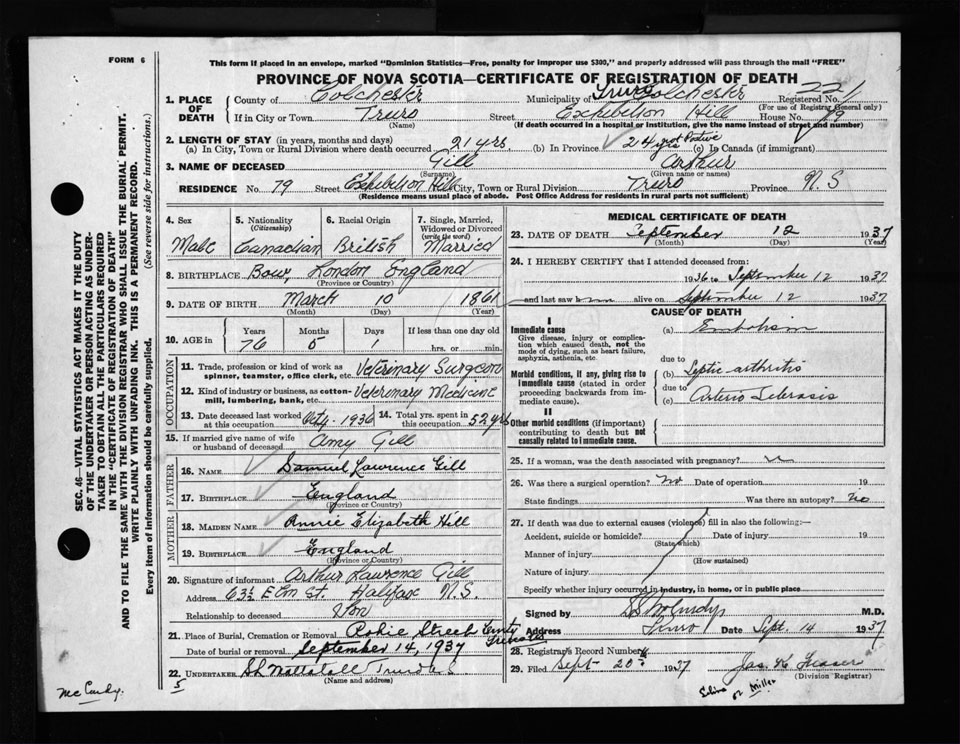 FORM 6
This form if placed in an envelope, marked "Dominion Statistics—Free, penalty for improper use $300," and properly addressed will pass through the mail "FREE"
PROVINCE OF NOVA SCOTIA—CERTIFICATE OF REGISTRATION OF DEATH
1. PLACE OF DEATH County of Colchester Municipality of Truro Colchester Registered No. 221
(For use of Registrar General only)
If in City or Town Truro Street Exhibition Hill House No. 79
(Name) (If death occurred in a hospital or institution, give the name instead of street and number)
2. LENGTH OF STAY (in years, months and days)
(a) In City, Town or Rural Division where death occurred 21 yrs (b) In Province 24 yrs not Positive (c) In Canada (if immigrant)
3. NAME OF DECEASED Gill Arthur
(Surname) (Given name or names)
RESIDENCE No. 79 Street Exhibition Hill City, Town or Rural Division Truro Province N.S
(Residence means usual place of abode. Post Office Address for residents in rural parts not sufficient)
4. Sex 5. Nationality (Citizenship) 6. Racial Origin 7. Single, Married, Widowed or Divorced (write the word)
Male Canadian British Married
8. BIRTHPLACE Bow, London England
(Province or Country)
9. DATE OF BIRTH March 10 1861
(Month) (Day) (Year)
10. AGE in Years Months Days If less than one day old
76 5 1 hrs. or min.
OCCUPATION
11. Trade, profession or kind of work as spinner, teamster, office clerk, etc. Veterinary Surgeon
12. Kind of industry or business, as cotton-mill, lumbering, bank, etc. Veterinary Medicine
13. Date deceased last worked at this occupation 1936 14. Total yrs. spent in this occupation 52 yrs
15. If married give name of wife or husband of deceased Amy Gill
FATHER
16. NAME Samuel Lawrence Gill
17. BIRTHPLACE England
(Province or Country)
MOTHER
18. MAIDEN NAME Annie Elizabeth Hill
19. BIRTHPLACE England
(Province or Country)
20. Signature of informant Arthur Lawrence Gill
Address 63½ Elm St. Halifax N.S.
Relationship to deceased Son
21. Place of Burial, Cremation or Removal Robie Street
Date of burial or removal September 14, 1937
22. UNDERTAKER
(Name and address)
MEDICAL CERTIFICATE OF DEATH
23. DATE OF DEATH September 12 1937
(Month) (Day) (Year)
24. I HEREBY CERTIFY that I attended deceased from:
1936 to September 12 1937
and last saw him alive on September 12 1937
CAUSE OF DEATH
I
Immediate cause (a) Embolism
Give disease, injury or complication which caused death, not the mode of dying, such as heart failure, asphyxia, asthenia, etc.
due to
Morbid conditions, if any, giving rise to immediate cause (stated in order proceeding backwards from immediate cause).
(b) Septic arthritis
due to
(c) Arterio Sclerosis
II
Other morbid conditions (if important) contributing to death but not causally related to immediate cause.
25. If a woman, was the death associated with pregnancy?
26. Was there a surgical operation? No Date of operation 19
State findings Was there an autopsy? No
27. If death was due to external causes (violence) fill in also the following:—
Accident, suicide or homicide? Date of injury 19
(State which)
Manner of injury
(How sustained)
Nature of injury
Specify whether injury occurred in industry, in home, or in public place
Signed by M.D.
Address Truro Date Sept. 14 1937
28. Registrar's Record Number
29. Filed Sept 20 1937 Jas. W. Fraser
(Division Registrar)
McCurdy.
5
or Miller
SEC. 46—VITAL STATISTICS ACT MAKES IT THE DUTY
OF THE UNDERTAKER OR PERSON ACTING AS UNDER-
TAKER TO OBTAIN ALL THE PARTICULARS REQUIRED
IN THE "CERTIFICATE OF REGISTRATION OF DEATH"
AND TO FILE THE SAME WITH THE DIVISION REGISTRAR WHO SHALL ISSUE THE BURIAL PERMIT.
WRITE PLAINLY WITH UNFADING INK. THIS IS A PERMANENT RECORD.
Every item of information should be carefully supplied. (See reverse side for instructions.)